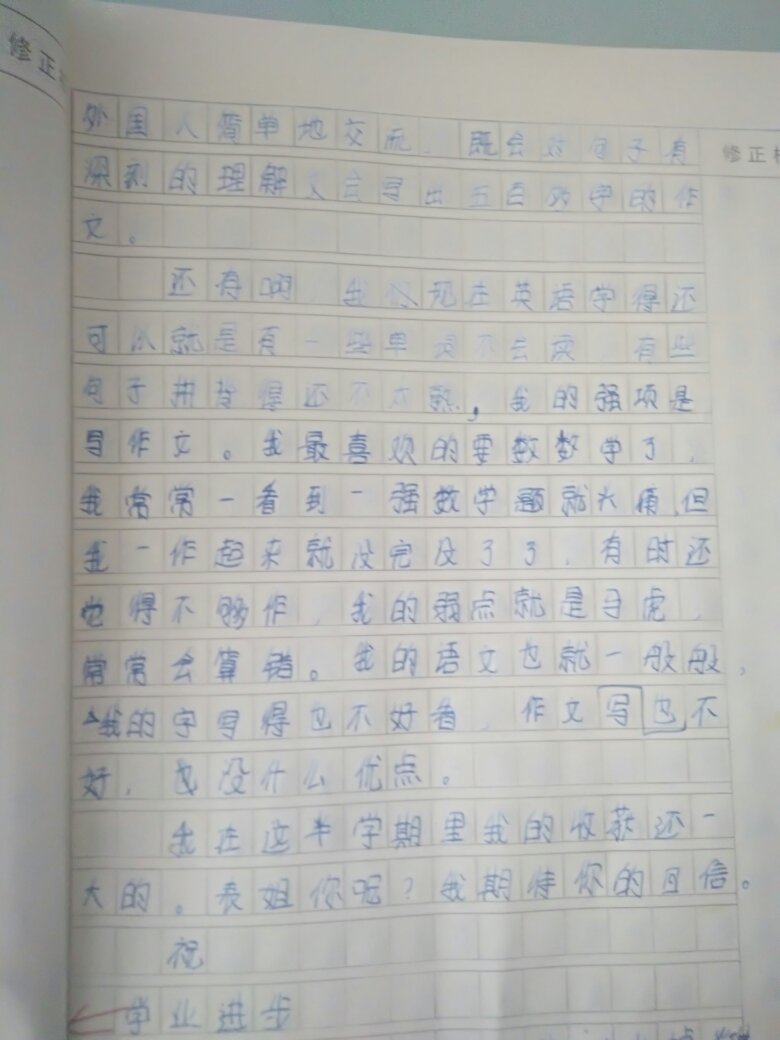 修正
外国人简单地交流，既会对句子有
修正
深刻的理解又会写出五百多字的作
文。
还有啊，我们现在英语学得还
可以就是有一些单词不会读，有些
句子拼背得还不太熟，我的强项是
写作文。我最喜欢的要数数学了，
我常常一看到一强数学题就大痛，但
我一作起来就没完没了了，有时还
觉得不够作，我的弱点就是马虎，
常常会算错。我的语文也就一般般，
我的字写得也不好看，作文写也不
好，也没什么优点。
我在这半学期里我的收获还一
大的。表姐你呢？我期待你的回信。
祝
学业进步